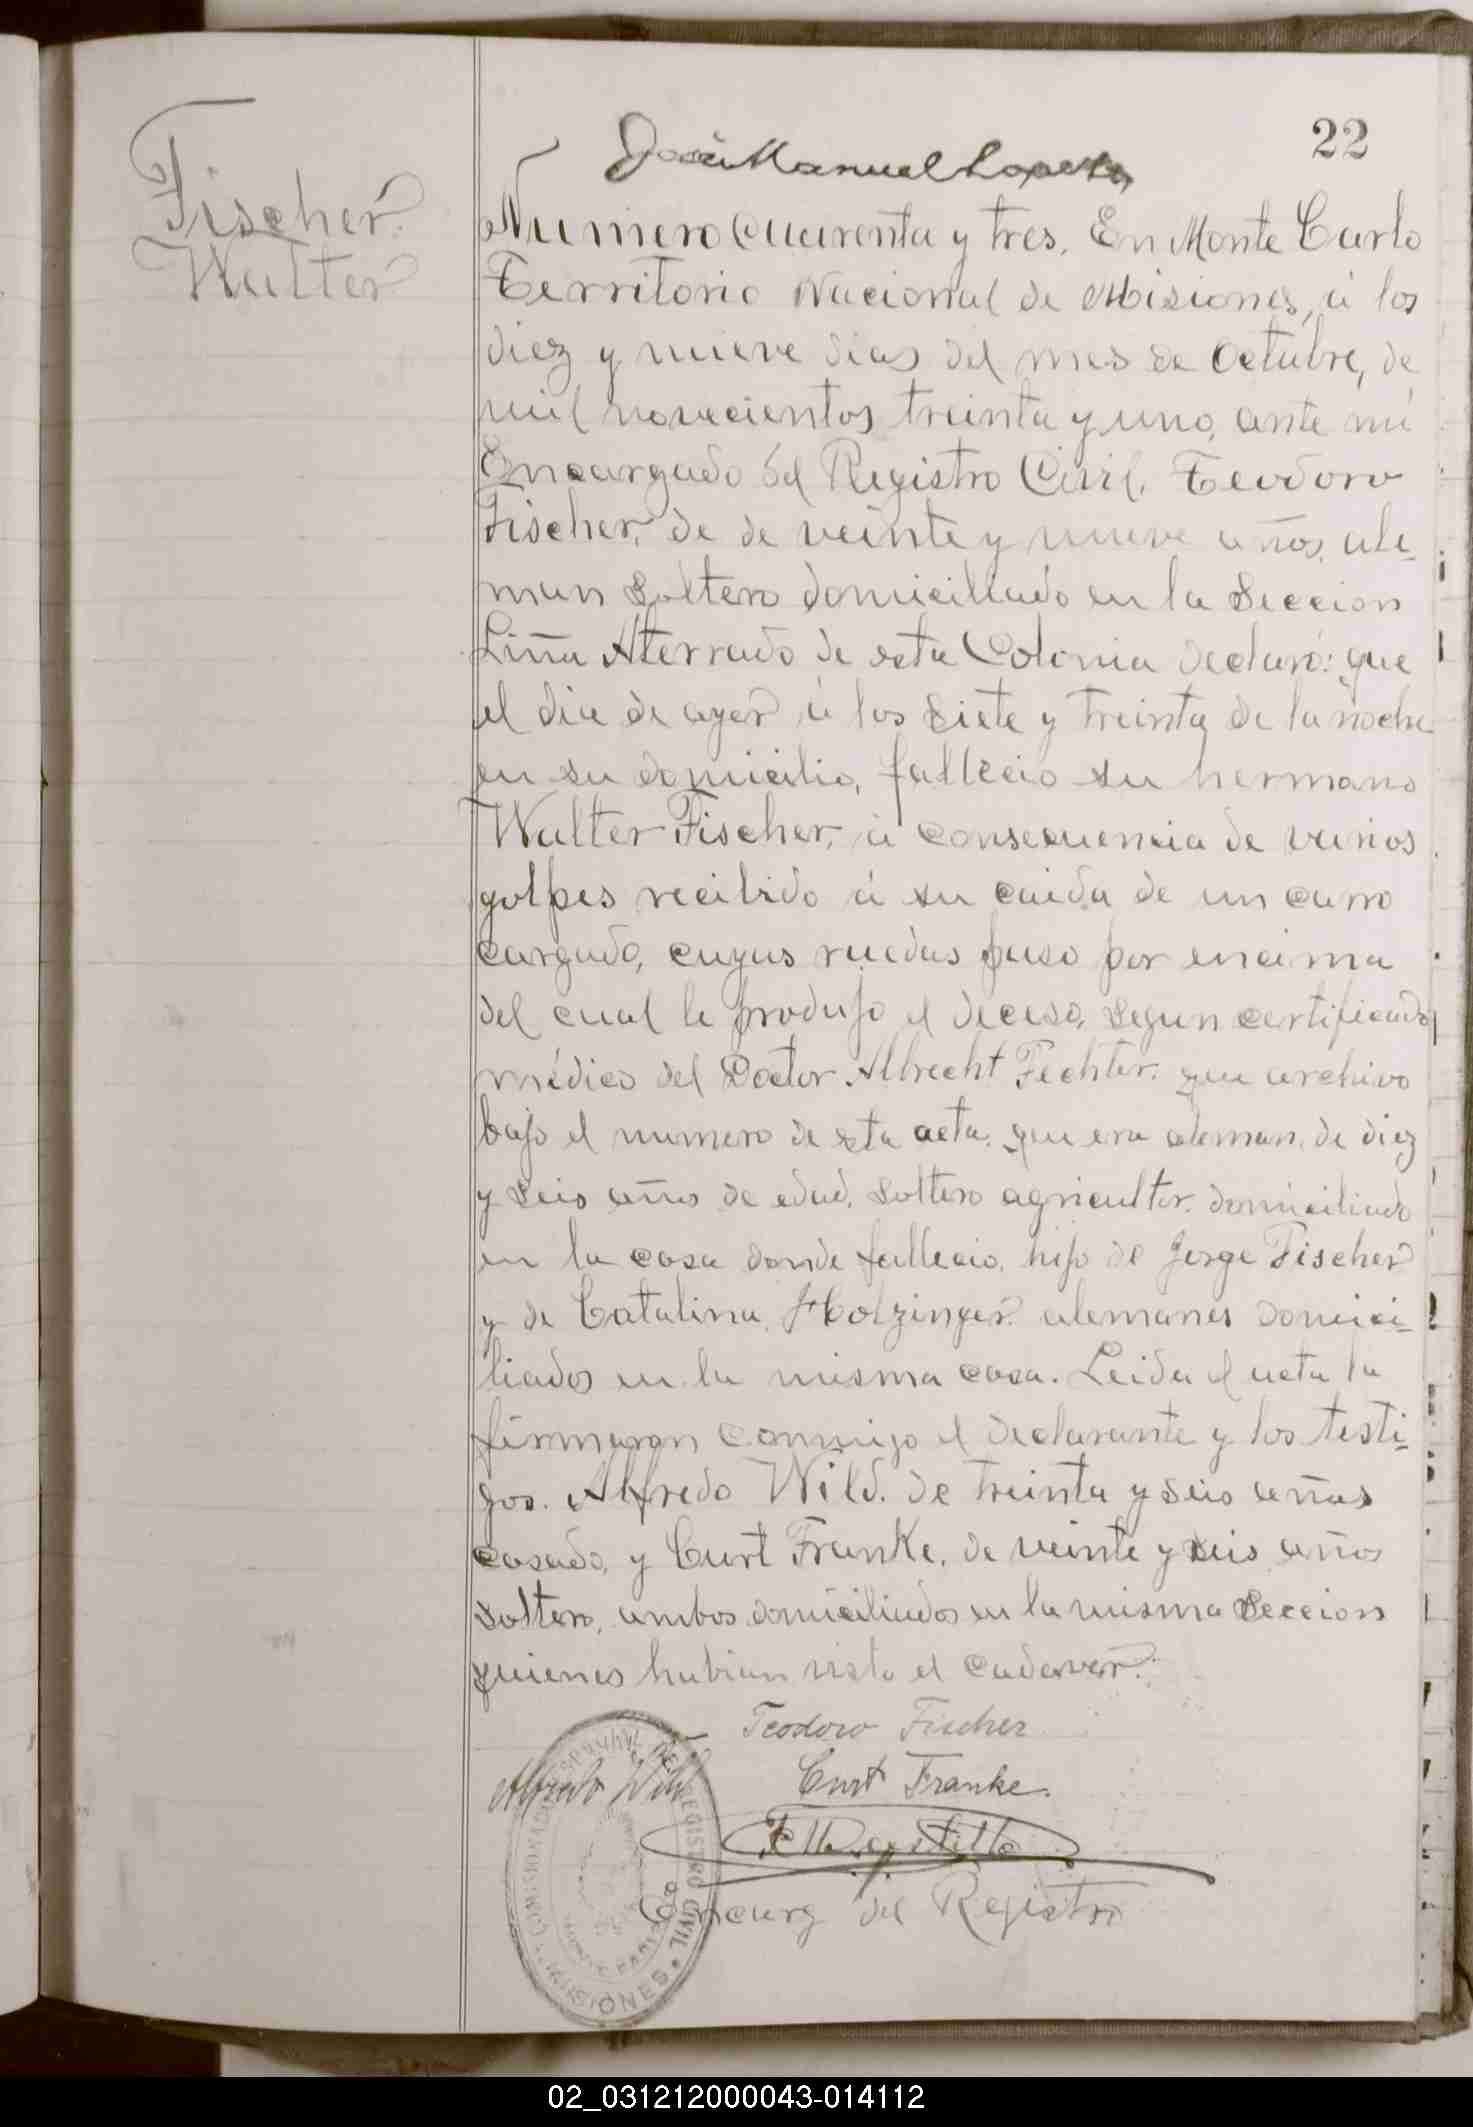 22
José Manuel
Fischer
Walter
Numero cuarenta y tres. En Monte Carlo
Territorio Nacional de Misiones, á los
diez y nueve dias del mes de octubre, de
mil novecientos treinta y uno, ante mi
Encargado del Registro Civil. Teodoro
Fischer, de de veinte y nueve años, ale-
man soltero domicillado en la seccion
Liña Aterrado de esta Colonia declaró: que
el dia de ayer á las siete y treinta de la noche
en su domicilio, fallecio su hermano
Walter Fischer, á consecuencia de varios
golpes recibido á su caida de un carro
cargado, cuyas ruedas paso por encima
del cual le produjo el deceso, segun certificado
médico del Doctor Albrecht Fechter. que archivo
bajo el numero de esta acta. que era aleman, de diez
y seis años de edad, soltero agricultor. domiciliado
en la casa donde fallecio, hijo de Jorge Fischer
y de Catalina Holzinger. alemanes domici-
liados en la misma casa. Leida el acta la
firmaron conmigo el declarante y los testi-
gos. Alfredo Wild. de treinta y seis años
casado, y Curt Franke, de veinte y seis años
soltero, ambos domiciliados en la misma seccion
quienes habian visto el cadaver.
Teodoro Fischer
Alfredo Wild
Curt Franke.
Encarg del Registro
REGISTRO CIVIL
MISIONES
02_031212000043-014112